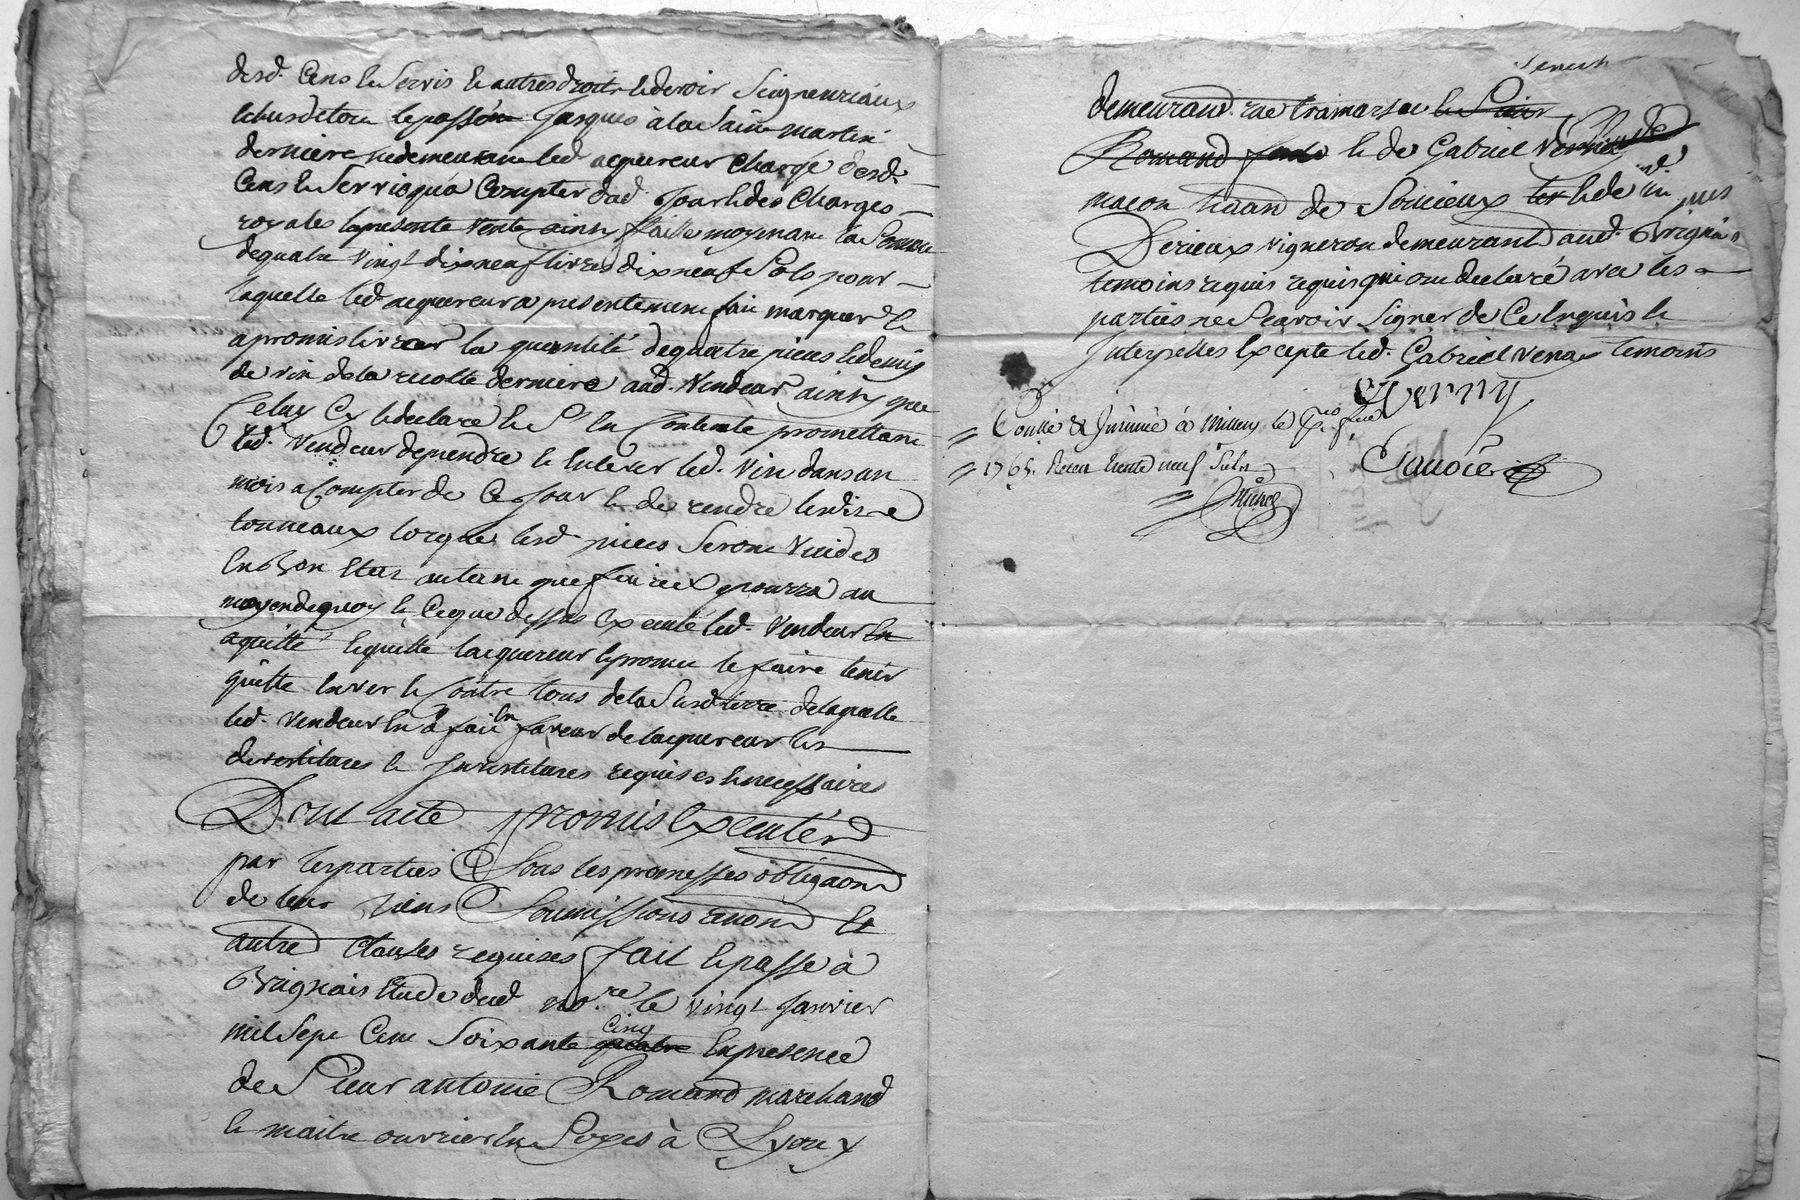 desd. Cens et Servis et autres droits et devoir Seigneuriaux
echus de tout le passé Jusques à la Saint martin
derniere et demeurant led. acquereur Chargé desd.
Cens et Servis qu'a Compter dud. Jour et des Charges
royales la presente Vente ainsy faitte moyenant la Somme
de quatre Vingt dixneuf livres dixneuf Sols pour
laquelle led. acquereur a presentement fait marquer et
a promis livrer la quantité de quatre pieces et demy
de vin de la recolte derniere aud. Vendeur ainsy que
Celuy Cy le declare et S'en Contente promettant
led. Vendeur de prendre et Enlever led. Vin dans un
mois a Compter de Ce Jour et de rendre lesdits
tonneaux lorque lesd. pieces Seront Vuides
En bon Etat autant que faire ce pourra au
moyen de quoy et Ce que dessus Executé led. Vendeur En
aquitte et quitte l'acquereur et promet le faire tenir
quitte Enver et Contre tous de la Susd. terre de laquelle
led. Vendeur En a fait en faveur de l'acquereur les
devestitures et Investitures requises et necessaires
Dont acte promis Executer
par les parties Sous les promesses obligaons
de leur biens Soumissions renons Et
autre Clauses requises fait et passé à
Brignais Etude dud. no.re le vingt Janvier
mil Sept Cent Soixante quatre cinq En presence
de Sieur antoine Romand marchand
et maitre ouvrier en Soyes à Lyon y
demeurand rue tramassac le Sieur
Romand et de Gabriel
macon de Soucieux et de
Derieux vigneron demeurant aud. Brignais
temoins requis requis qui ont declaré avec les
parties ne Scavoir Signer de Ce Enquis et
Interpelles Excepte led. Gabriel venay temoins
Controllé & Insinué à Millery le
1765. Receu trente neuf Sols